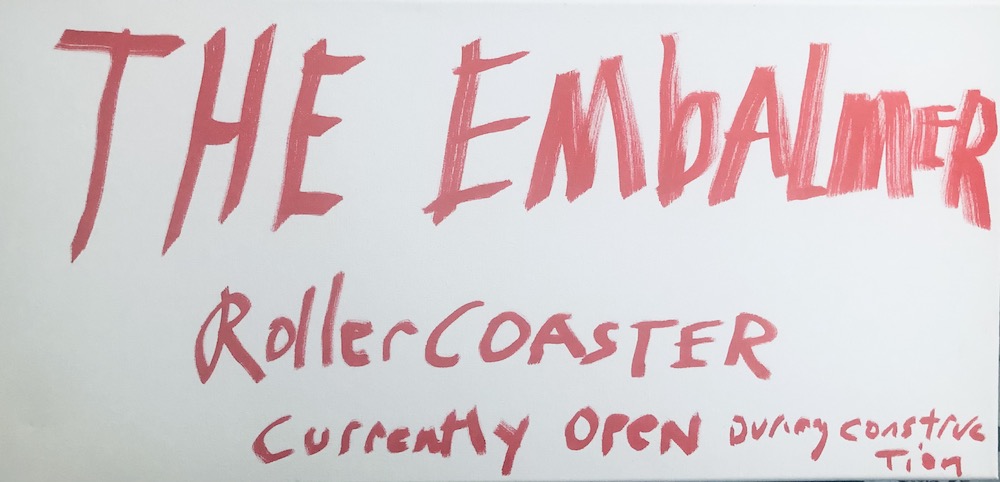 THE EmbALmER
RollerCOASTER
Currently OPEN During construc
Tion